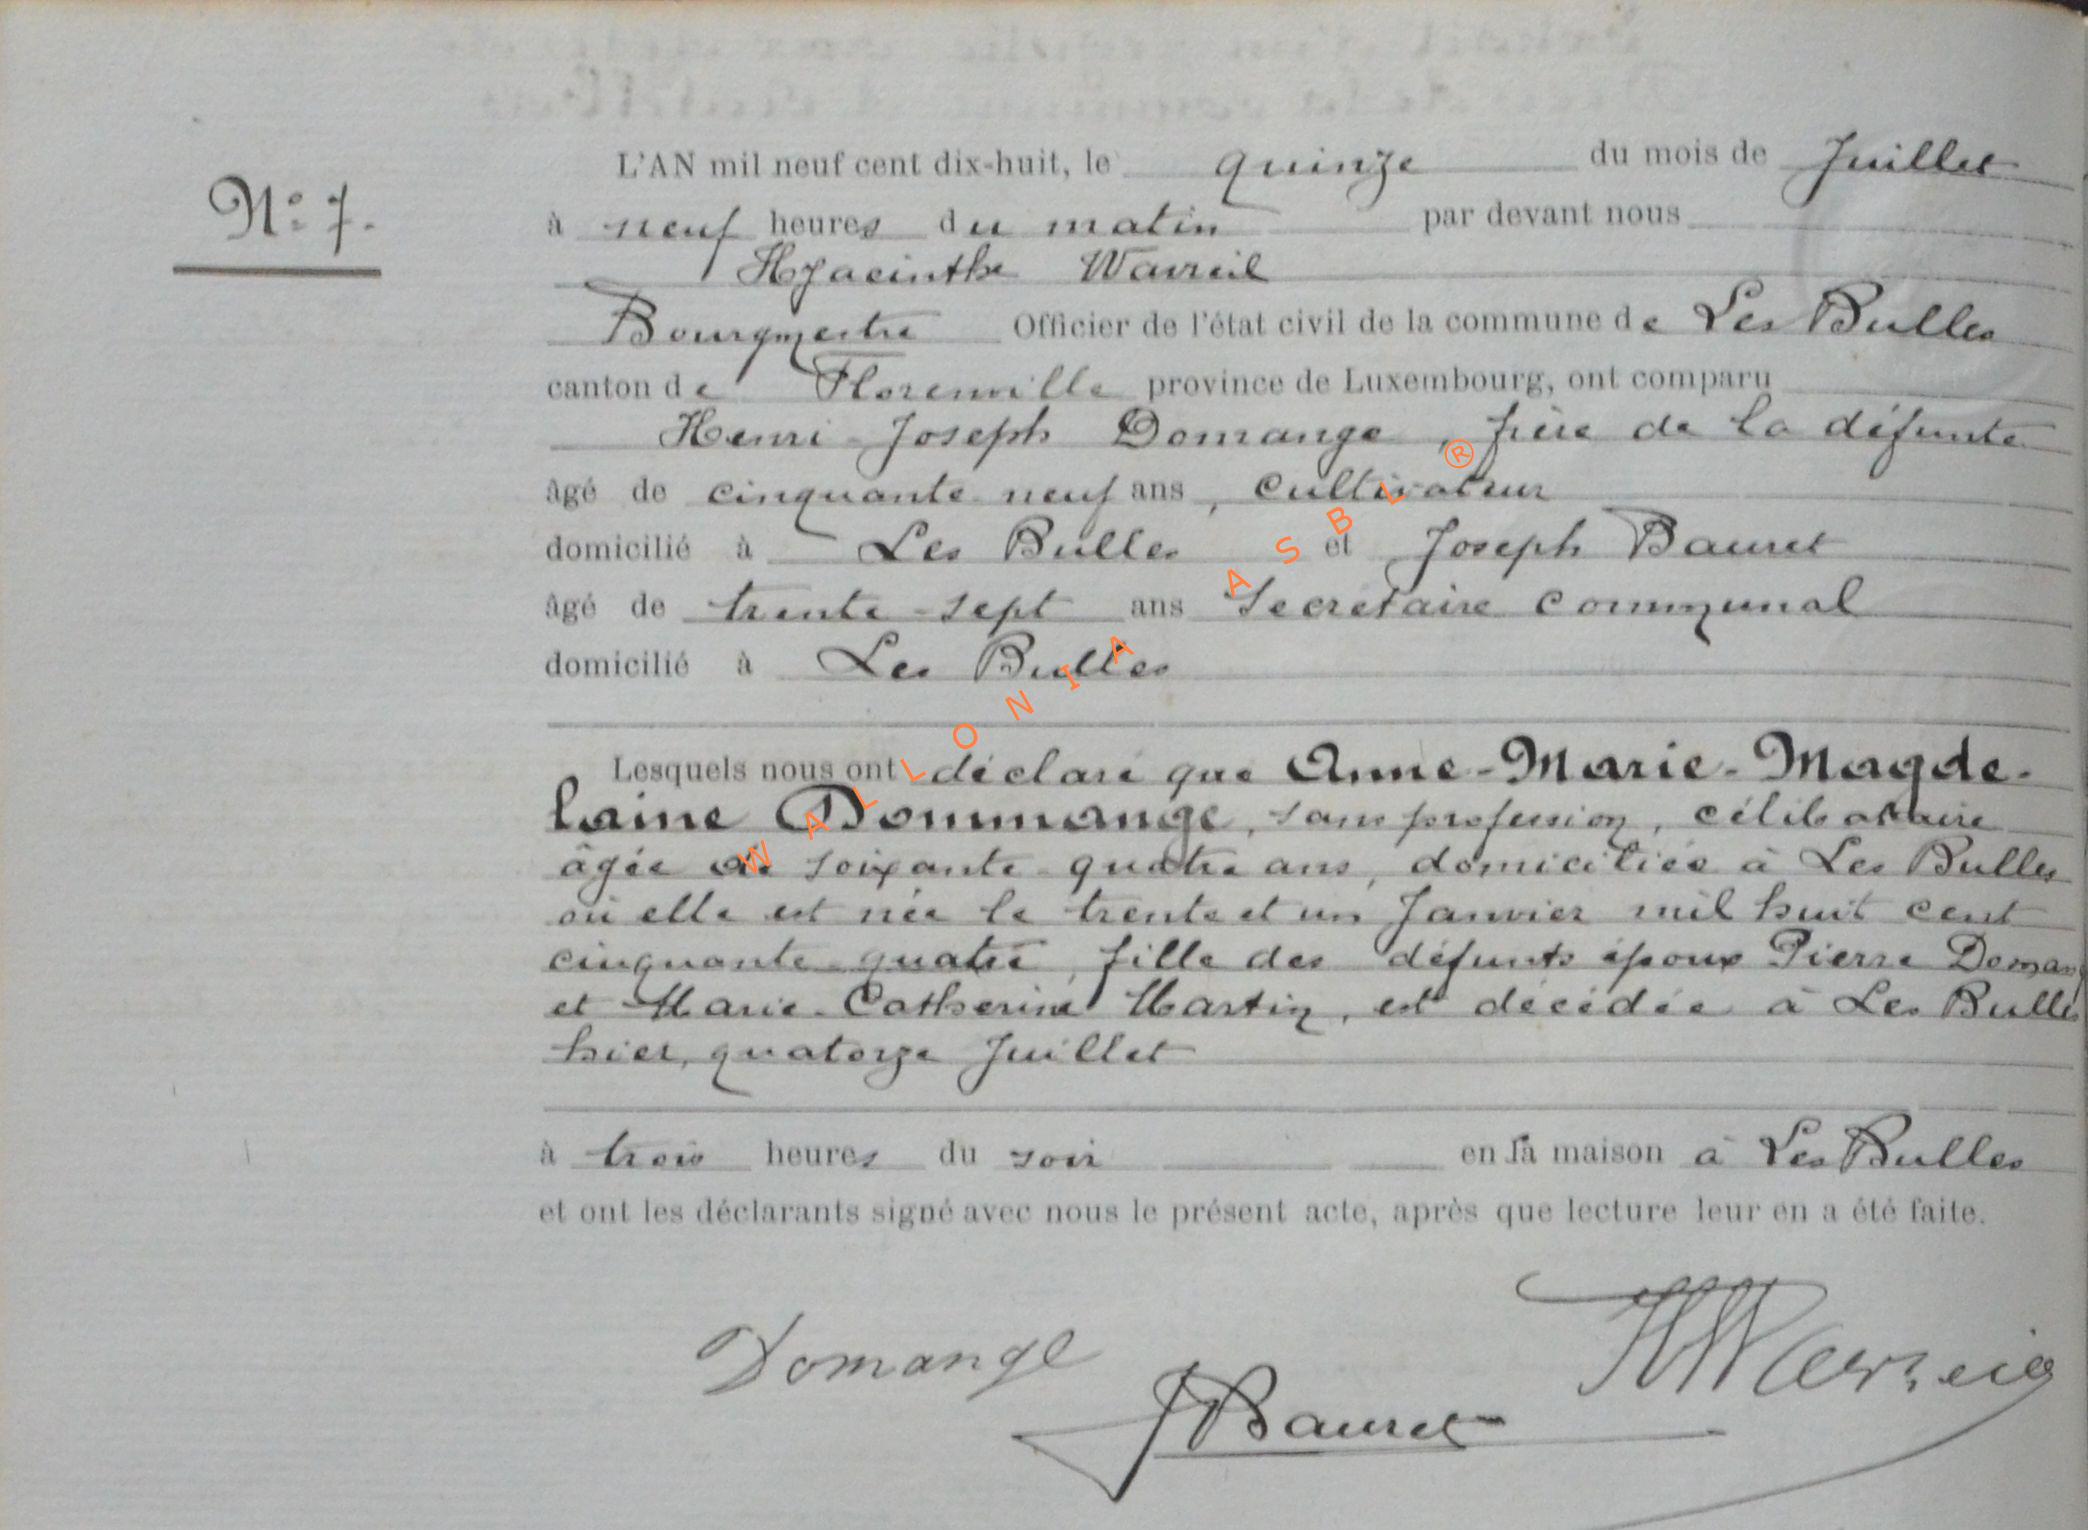 N° 7.
L'AN mil neuf cent dix-huit, le quinze du mois de Juillet
à neuf heures du matin par devant nous
Hyacinthe Wavreil
Bourgmestre Officier de l'état civil de la commune de Les Bulles
canton de Florenville province de Luxembourg, ont comparu
Henri-Joseph Domange, frère de la défunte
âgé de cinquante-neuf ans, cultivateur
domicilié à Les Bulles et Joseph Bauret
âgé de trente-sept ans Secrétaire communal
domicilié à Les Bulles
Lesquels nous ont déclaré que Anne-Marie-Magde-
laine Dommange, sans profession, célibataire
âgée de soixante-quatre ans, domiciliée à Les Bulles
où elle est née le trente et un Janvier mil huit cent
cinquante-quatre, fille des défunts époux Pierre Domang
et Marie-Catherine Martin, est décédée à Les Bulles
hier, quatorze Juillet
à trois heures du soir en la maison à Les Bulles
et ont les déclarants signé avec nous le présent acte, après que lecture leur en a été faite.
Domange
JBauret
HWavreil
WALLONIA ASBL ®